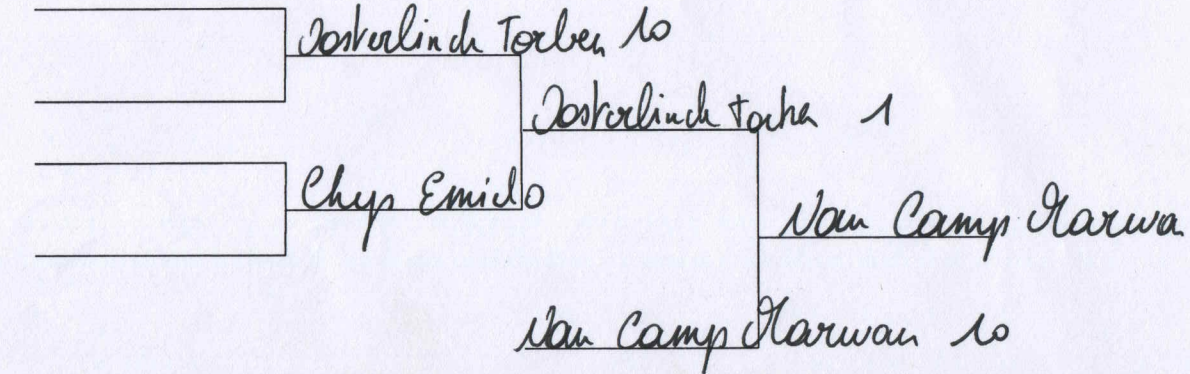 Oosterlinck Torben 10
Oosterlinck Torben 1
Chys Emiel 0
Van Camp Marwa
Van Camp Marwan 10